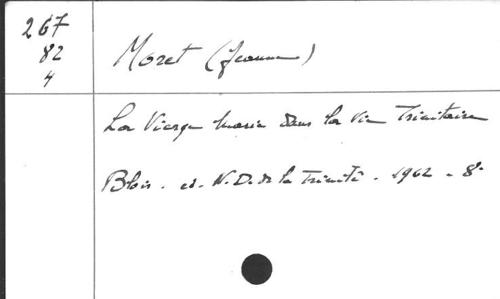 267
82
4
Moret (Jeanne)
La Vierge Marie dans la Vie Trinitaire
Blois. ed. N.D. de la Trinité. 1962. 8°